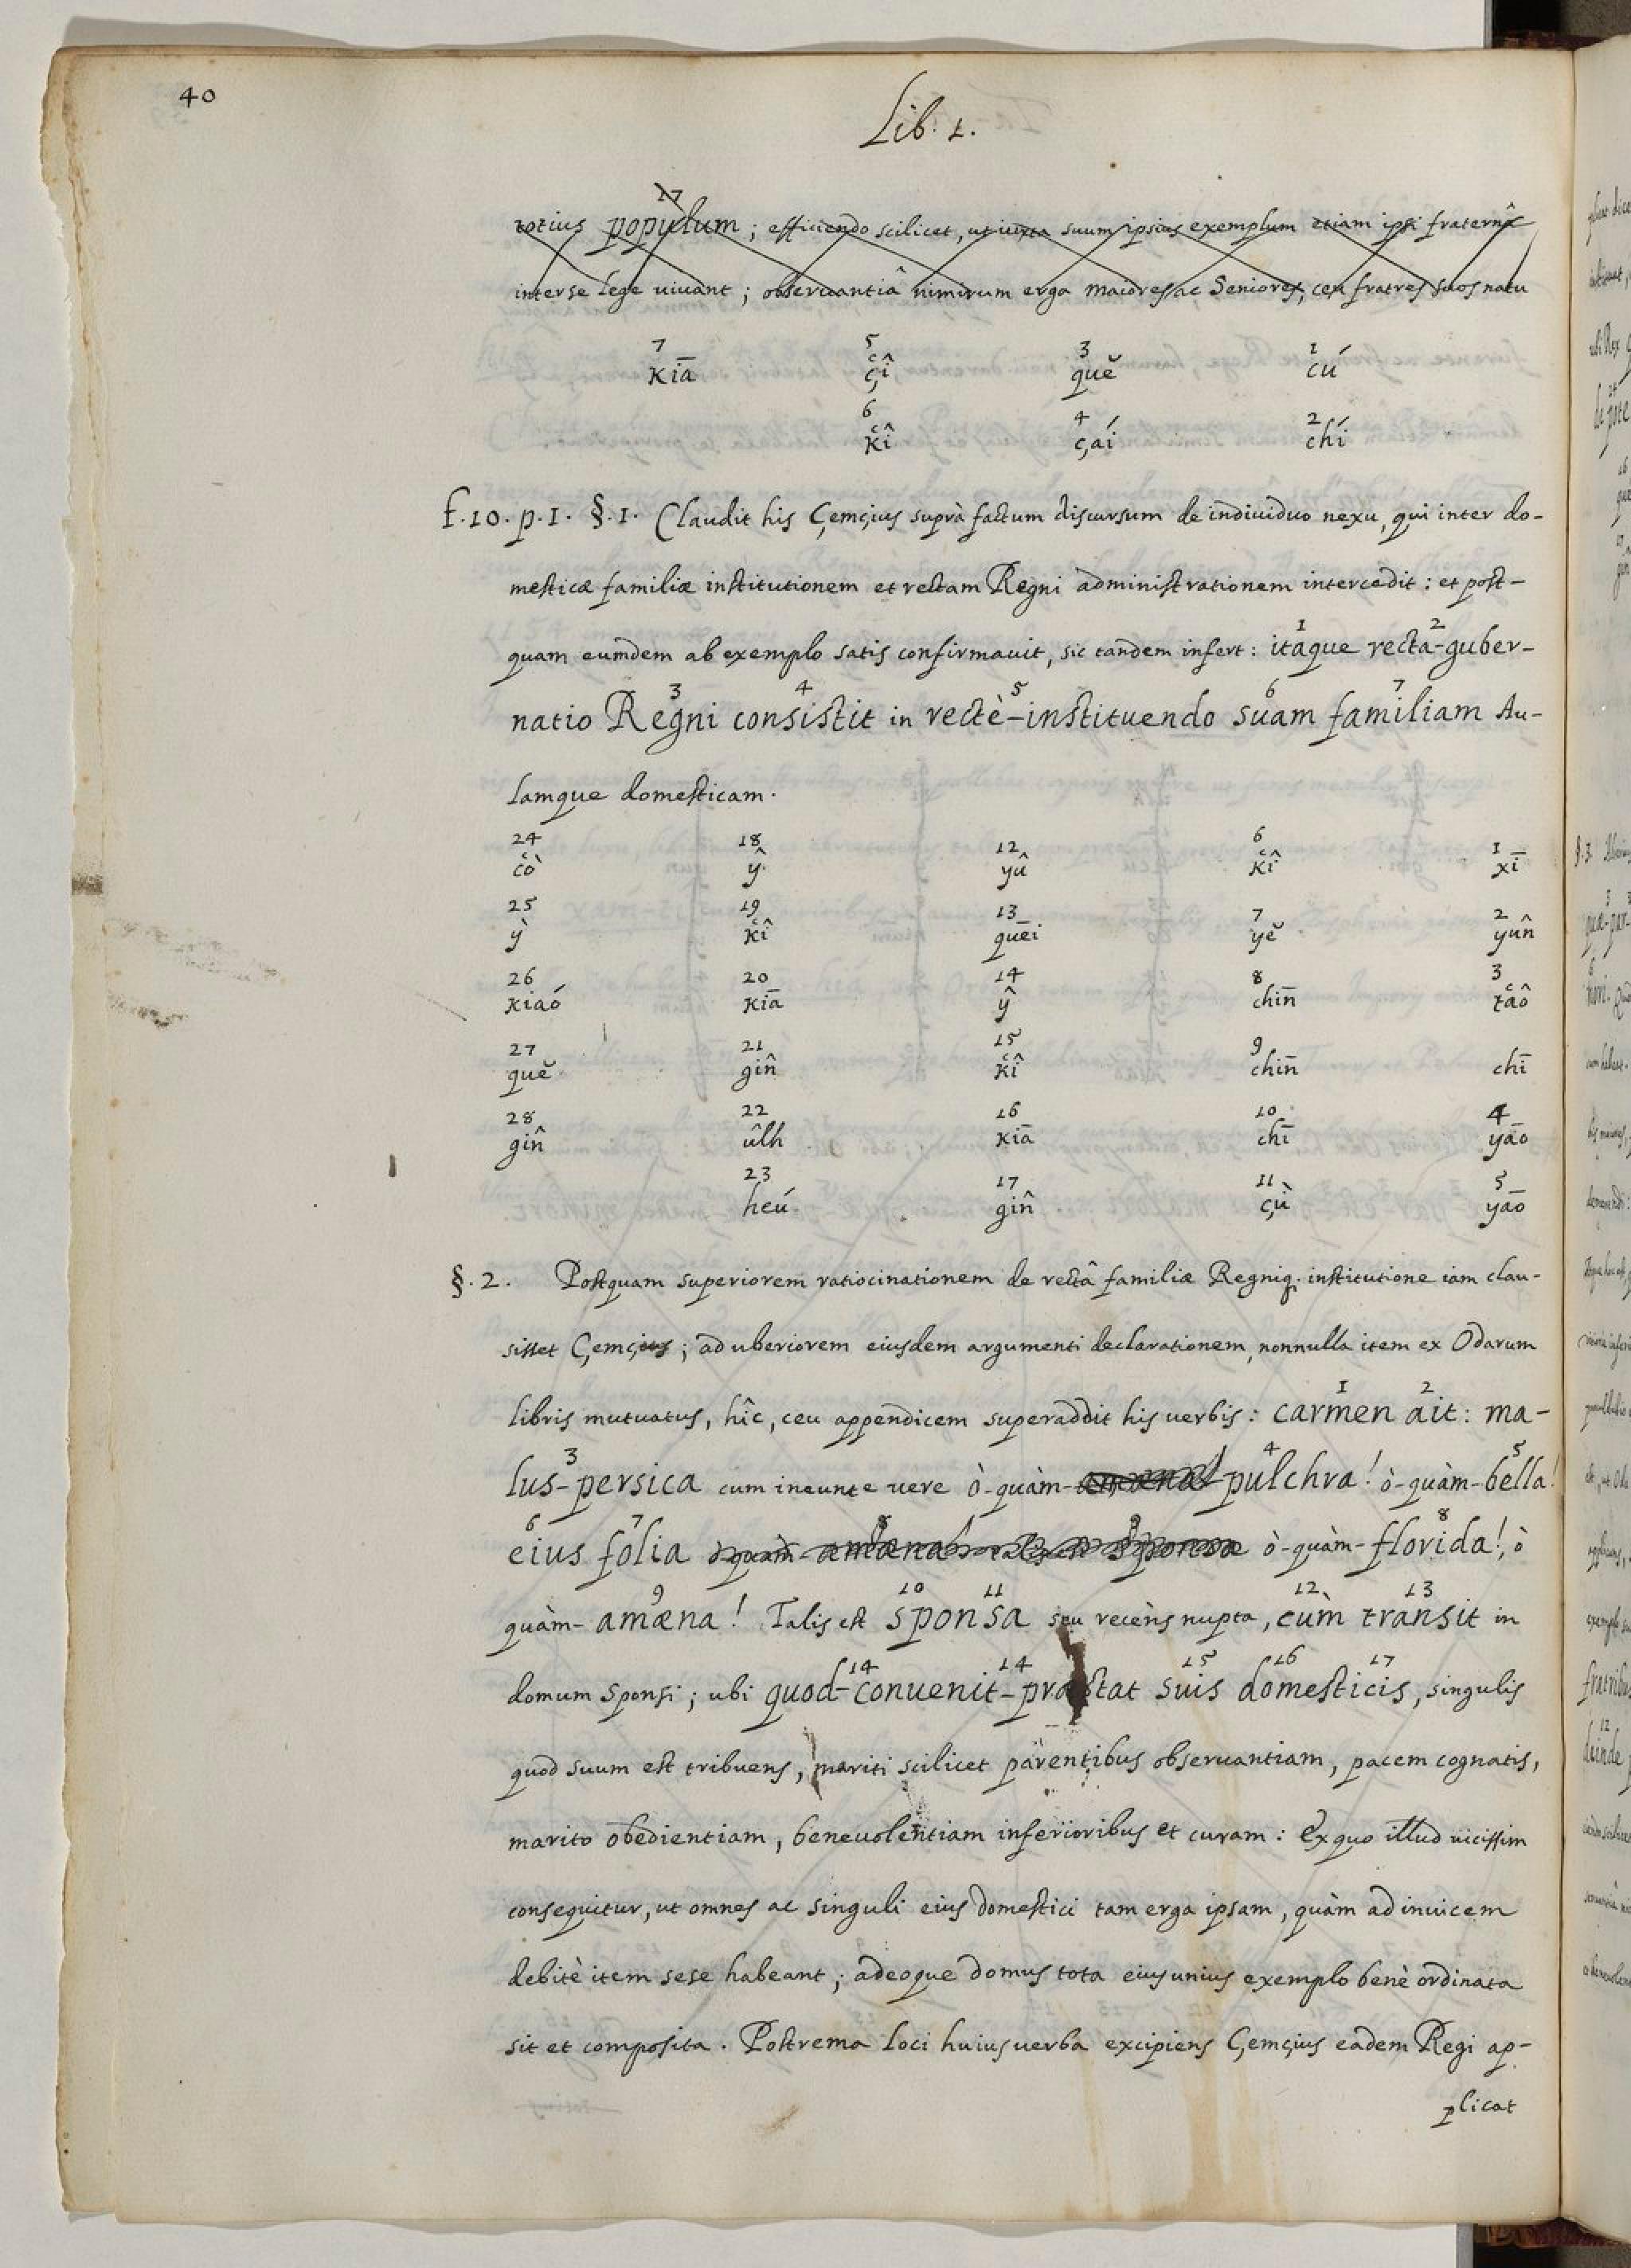 40
Lib. 1.
17
totius populum ; efficiendo scilicet, ut iuxta suum ipsius exemplum etiam ipsi fraternâ
inter se lege uiuant ; obseruantiâ nimirum erga maiores ac Seniores, ceu fratres suos natu
7 5 3 1
kiā çî quĕ cú
6 4 2
kî çái chí
f.10. p.1. §.1. Claudit his Çemçius suprà factum discursum de indiuiduo nexu, qui inter do-
mesticæ familiæ institutionem et rectam Regni administrationem intercedit : et post-
1 2
quam eumdem ab exemplo satis confirmauit, sic tandem infert : itaque recta-guber-
3 4 5 6 7
natio Regni consistit in rectè-instituendo suam familiam Au-
lamque domesticam.
24 18 12 6 1
cò ŷ yû kî xī
25 19 13 7 2
ỳ kî quēi yĕ yûn
26 20 14 8 3
kiaó kiā ŷ chīn tâô
27 21 15 9
quĕ gîn kî chīn chī
28 22 16 10 4
gîn ûlh kiā chī yāo
23 17 11 5
heú gîn çù yāo
§.2. Postquam superiorem ratiocinationem de rectâ familiæ Regniq. institutione iam clau-
sisset Çemçius ; ad uberiorem eiusdem argumenti declarationem, nonnulla item ex Odarum
1 2
libris mutuatus, hîc, ceu appendicem superaddit his uerbis : carmen ait : ma-
3 4 5
lus-persica cum ineunte uere ò-quàm-amæna! pulchra! ò-quàm-bella!
6 7 8 9 8
eius folia ò quàm-amæna! talis est sponsa ò-quàm-florida!, ò
9 10 11 12 13
quàm-amæna! Talis est sponsa seu recèns nupta, cùm transit in
14 14 15 16 17
domum Sponsi ; ubi quod-conuenit-præstat suis domesticis, singulis
quod suum est tribuens, mariti scilicet parentibus obseruantiam, pacem cognatis,
marito obedientiam, beneuolentiam inferioribus et curam : Ex quo illud uicissim
consequitur, ut omnes ac singuli eius domestici tam erga ipsam, quàm ad inuicem
debitè item sese habeant ; adeoque domus tota eius unius exemplo benè ordinata
sit et composita. Postrema loci huius uerba excipiens Çemçius eadem Regi ap-
plicat